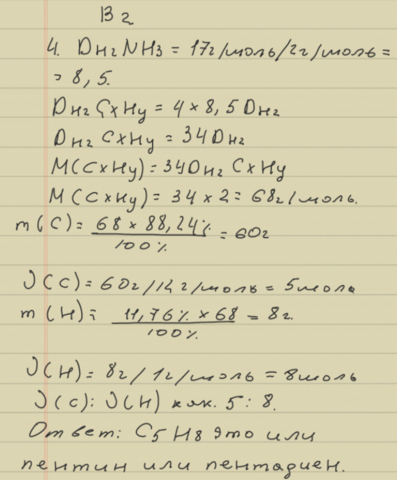 В 2
4. Dн₂NH₃ = 17г/моль/2г/моль =
= 8,5.
Dн₂ CxHy = 4 × 8,5 Dн₂
Dн₂ CxHy = 34 Dн₂
M(CxHy) = 34 Dн₂ CxHy
M(CxHy) = 34 × 2 = 68г/моль.
m(C) = 68 × 88,24% / 100% = 60г
J(C) = 60г/12г/моль = 5моль
m(H) = 11,76% × 68 / 100% = 8г.
J(H) = 8г/1г/моль = 8моль
J(C) : J(H) как. 5 : 8.
Ответ: C₅H₈ это или
пентин или пентадиен.